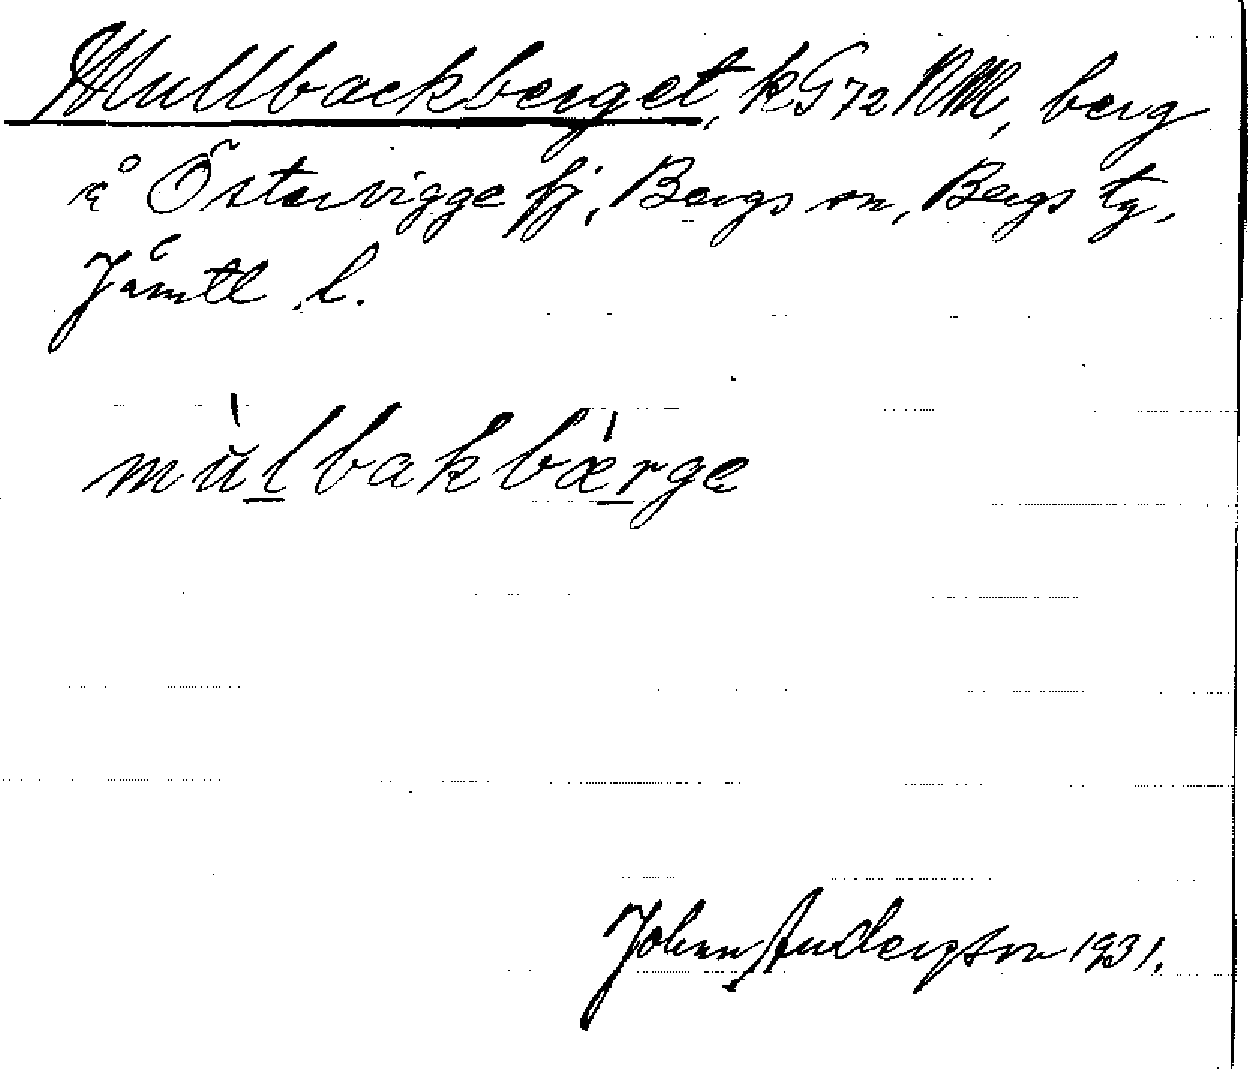 Mullbackberget, kG72 NM, berg
å Östervigge fj, Bergs sn, Bergs tg,
Jämtl. l.
mùl̲bakbæ̀r̲ge
Johan Anderzson 1931.